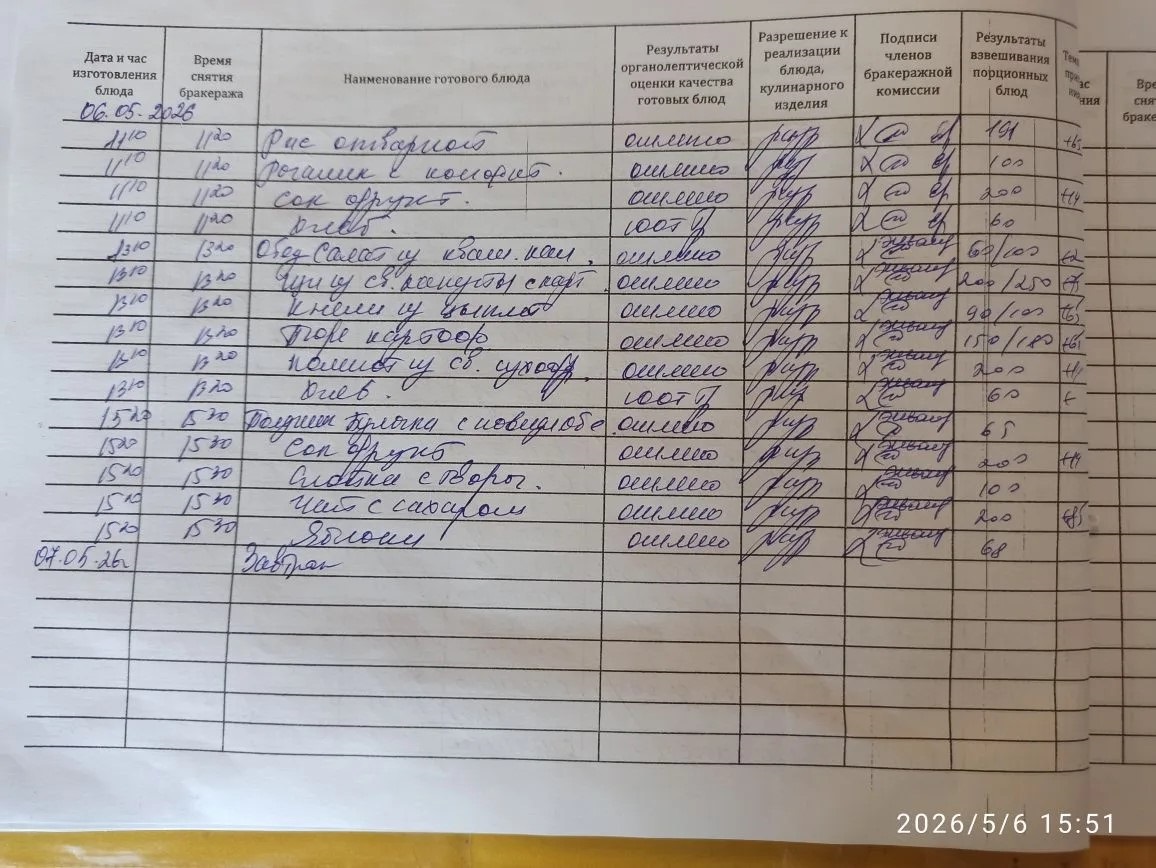 Дата и час изготовления блюда
Время снятия бракеража
Наименование готового блюда
Результаты органолептической оценки качества готовых блюд
Разрешение к реализации блюда, кулинарного изделия
Подписи членов бракеражной комиссии
Результаты взвешивания порционных блюд
06.05.2026
11 10 11 20 Рис отварной отлично разр 191
11 10 11 20 Рогалик с отлично разр 100
11 10 11 20 Сок фрукт. отлично разр 200
11 10 11 20 Хлеб. разр 60
13 10 13 20 Обед Салат из кваш. кап. отлично разр 60/100
13 10 13 20 Щи из св. капусты с карт отлично разр 200/250
13 10 13 20 Кнели из цыпл отлично разр 90/100
13 10 13 20 Пюре картоф отлично разр 150/180
13 10 13 20 Компот из св. сухофр. отлично разр 200
13 10 13 20 Хлеб. разр 60
15 20 15 30 Полдник Булочка с отлично разр 65
15 20 15 30 Сок фрукт отлично разр 200
15 20 15 30 с творог. отлично разр 100
15 20 15 30 Чай с сахаром отлично разр 200
15 20 15 30 Яблоки отлично разр 68
07.05.26г Завтрак
2026/5/6 15:51